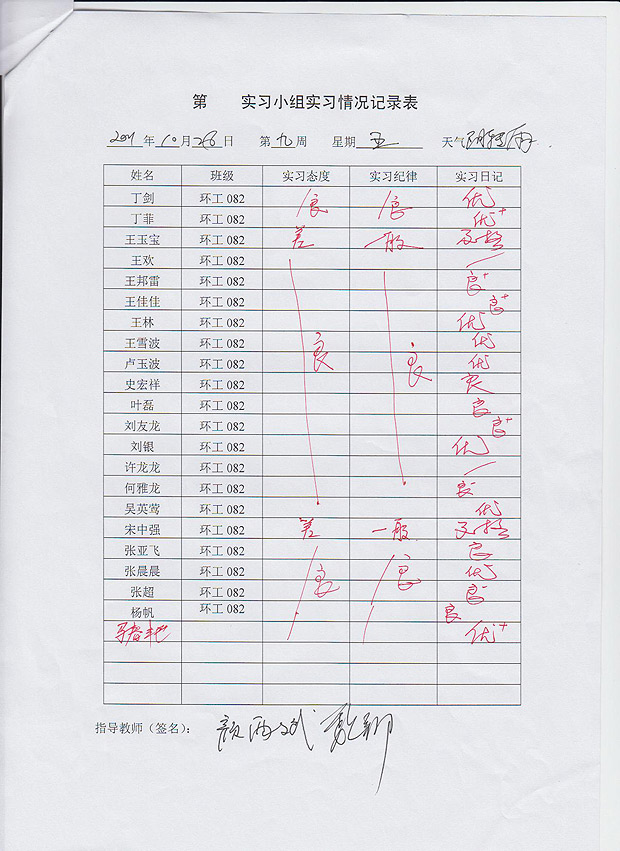 第 实习小组实习情况记录表
2011 年 10 月 28 日 第 九 周 星期 五 天气 阴转雨
姓名 班级 实习态度 实习纪律 实习日记
丁剑 环工 082 良 良 优
丁菲 环工 082 优+
王玉宝 环工 082 差 一般 及格
王欢 环工 082
王邦雷 环工 082 良+
王佳佳 环工 082 良+
王林 环工 082 优
王雪波 环工 082 良 良 优
卢玉波 环工 082 优
史宏祥 环工 082 良
叶磊 环工 082 良
刘友龙 环工 082 良+
刘银 环工 082 优
许龙龙 环工 082
何雅龙 环工 082 良-
吴英莺 环工 082 优
宋中强 环工 082 差 一般 及格
张亚飞 环工 082 良
张晨晨 环工 082 良 良 优
张超 环工 082 良-
杨帆 环工 082 良
优+
指导教师（签名）：